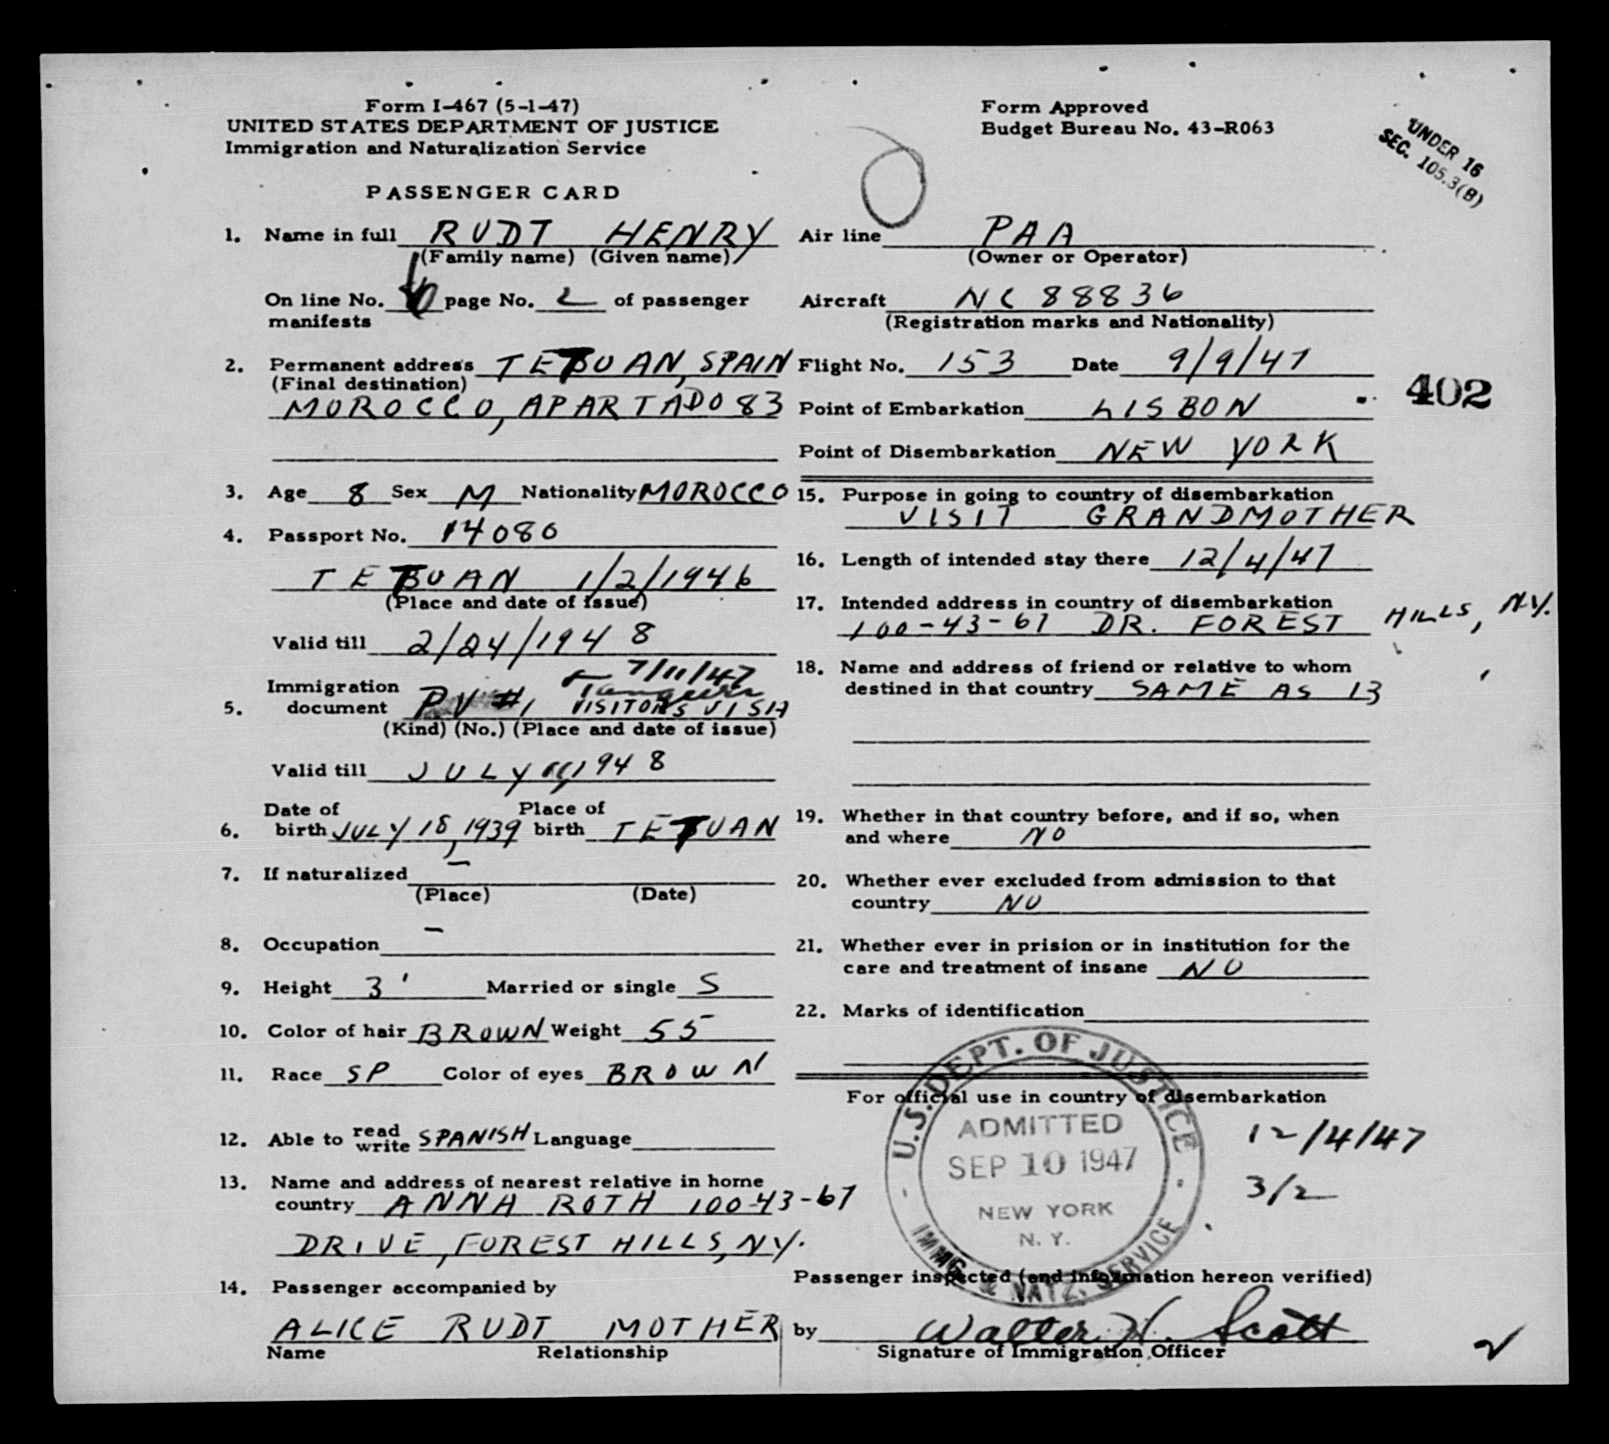 Form I-467 (5-1-47)
UNITED STATES DEPARTMENT OF JUSTICE
Immigration and Naturalization Service
PASSENGER CARD
Form Approved
Budget Bureau No. 43-R063
UNDER 16
SEC. 105.3(B)
1. Name in full RUDT HENRY
(Family name) (Given name)
On line No. page No. 2 of passenger
manifests
2. Permanent address TETUAN, SPAIN
(Final destination)
MOROCCO, APARTADO 83
3. Age 8 Sex M Nationality MOROCCO
4. Passport No. 14080
TETUAN 1/2/1946
(Place and date of issue)
Valid till 2/24/1948
7/11/47
Immigration
5. document PV #1 VISITORS VISA
(Kind) (No.) (Place and date of issue)
Valid till JULY 11, 1948
Date of Place of
6. birth JULY 18, 1939 birth TETUAN
7. If naturalized –
(Place) (Date)
8. Occupation –
9. Height 3' Married or single S
10. Color of hair BROWN Weight 55
11. Race SP Color of eyes BROWN
12. Able to read write SPANISH Language
13. Name and address of nearest relative in home
country ANNA ROTH 100-43-67
DRIVE, FOREST HILLS, N.Y.
14. Passenger accompanied by
ALICE RUDT MOTHER
Name Relationship
Air line PAA
(Owner or Operator)
Aircraft NC 88836
(Registration marks and Nationality)
Flight No. 153 Date 9/9/47
402
Point of Embarkation LISBON
Point of Disembarkation NEW YORK
15. Purpose in going to country of disembarkation
VISIT GRANDMOTHER
16. Length of intended stay there 12/4/47
17. Intended address in country of disembarkation
100-43-67 DR. FOREST HILLS, N.Y.
18. Name and address of friend or relative to whom
destined in that country SAME AS 13
19. Whether in that country before, and if so, when
and where NO
20. Whether ever excluded from admission to that
country NO
21. Whether ever in prision or in institution for the
care and treatment of insane NO
22. Marks of identification
For official use in country of disembarkation
U.S. DEPT. OF JUSTICE
ADMITTED
SEP 10 1947
NEW YORK
N. Y.
IMMG. & NATZ. SERVICE
12/4/47
3/2
Passenger inspected (and information hereon verified)
by Walter H. Scott
Signature of Immigration Officer